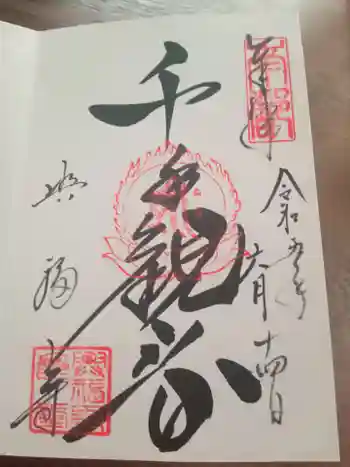 奉拝
令和五年
六月
十四日
千手観音
興福寺